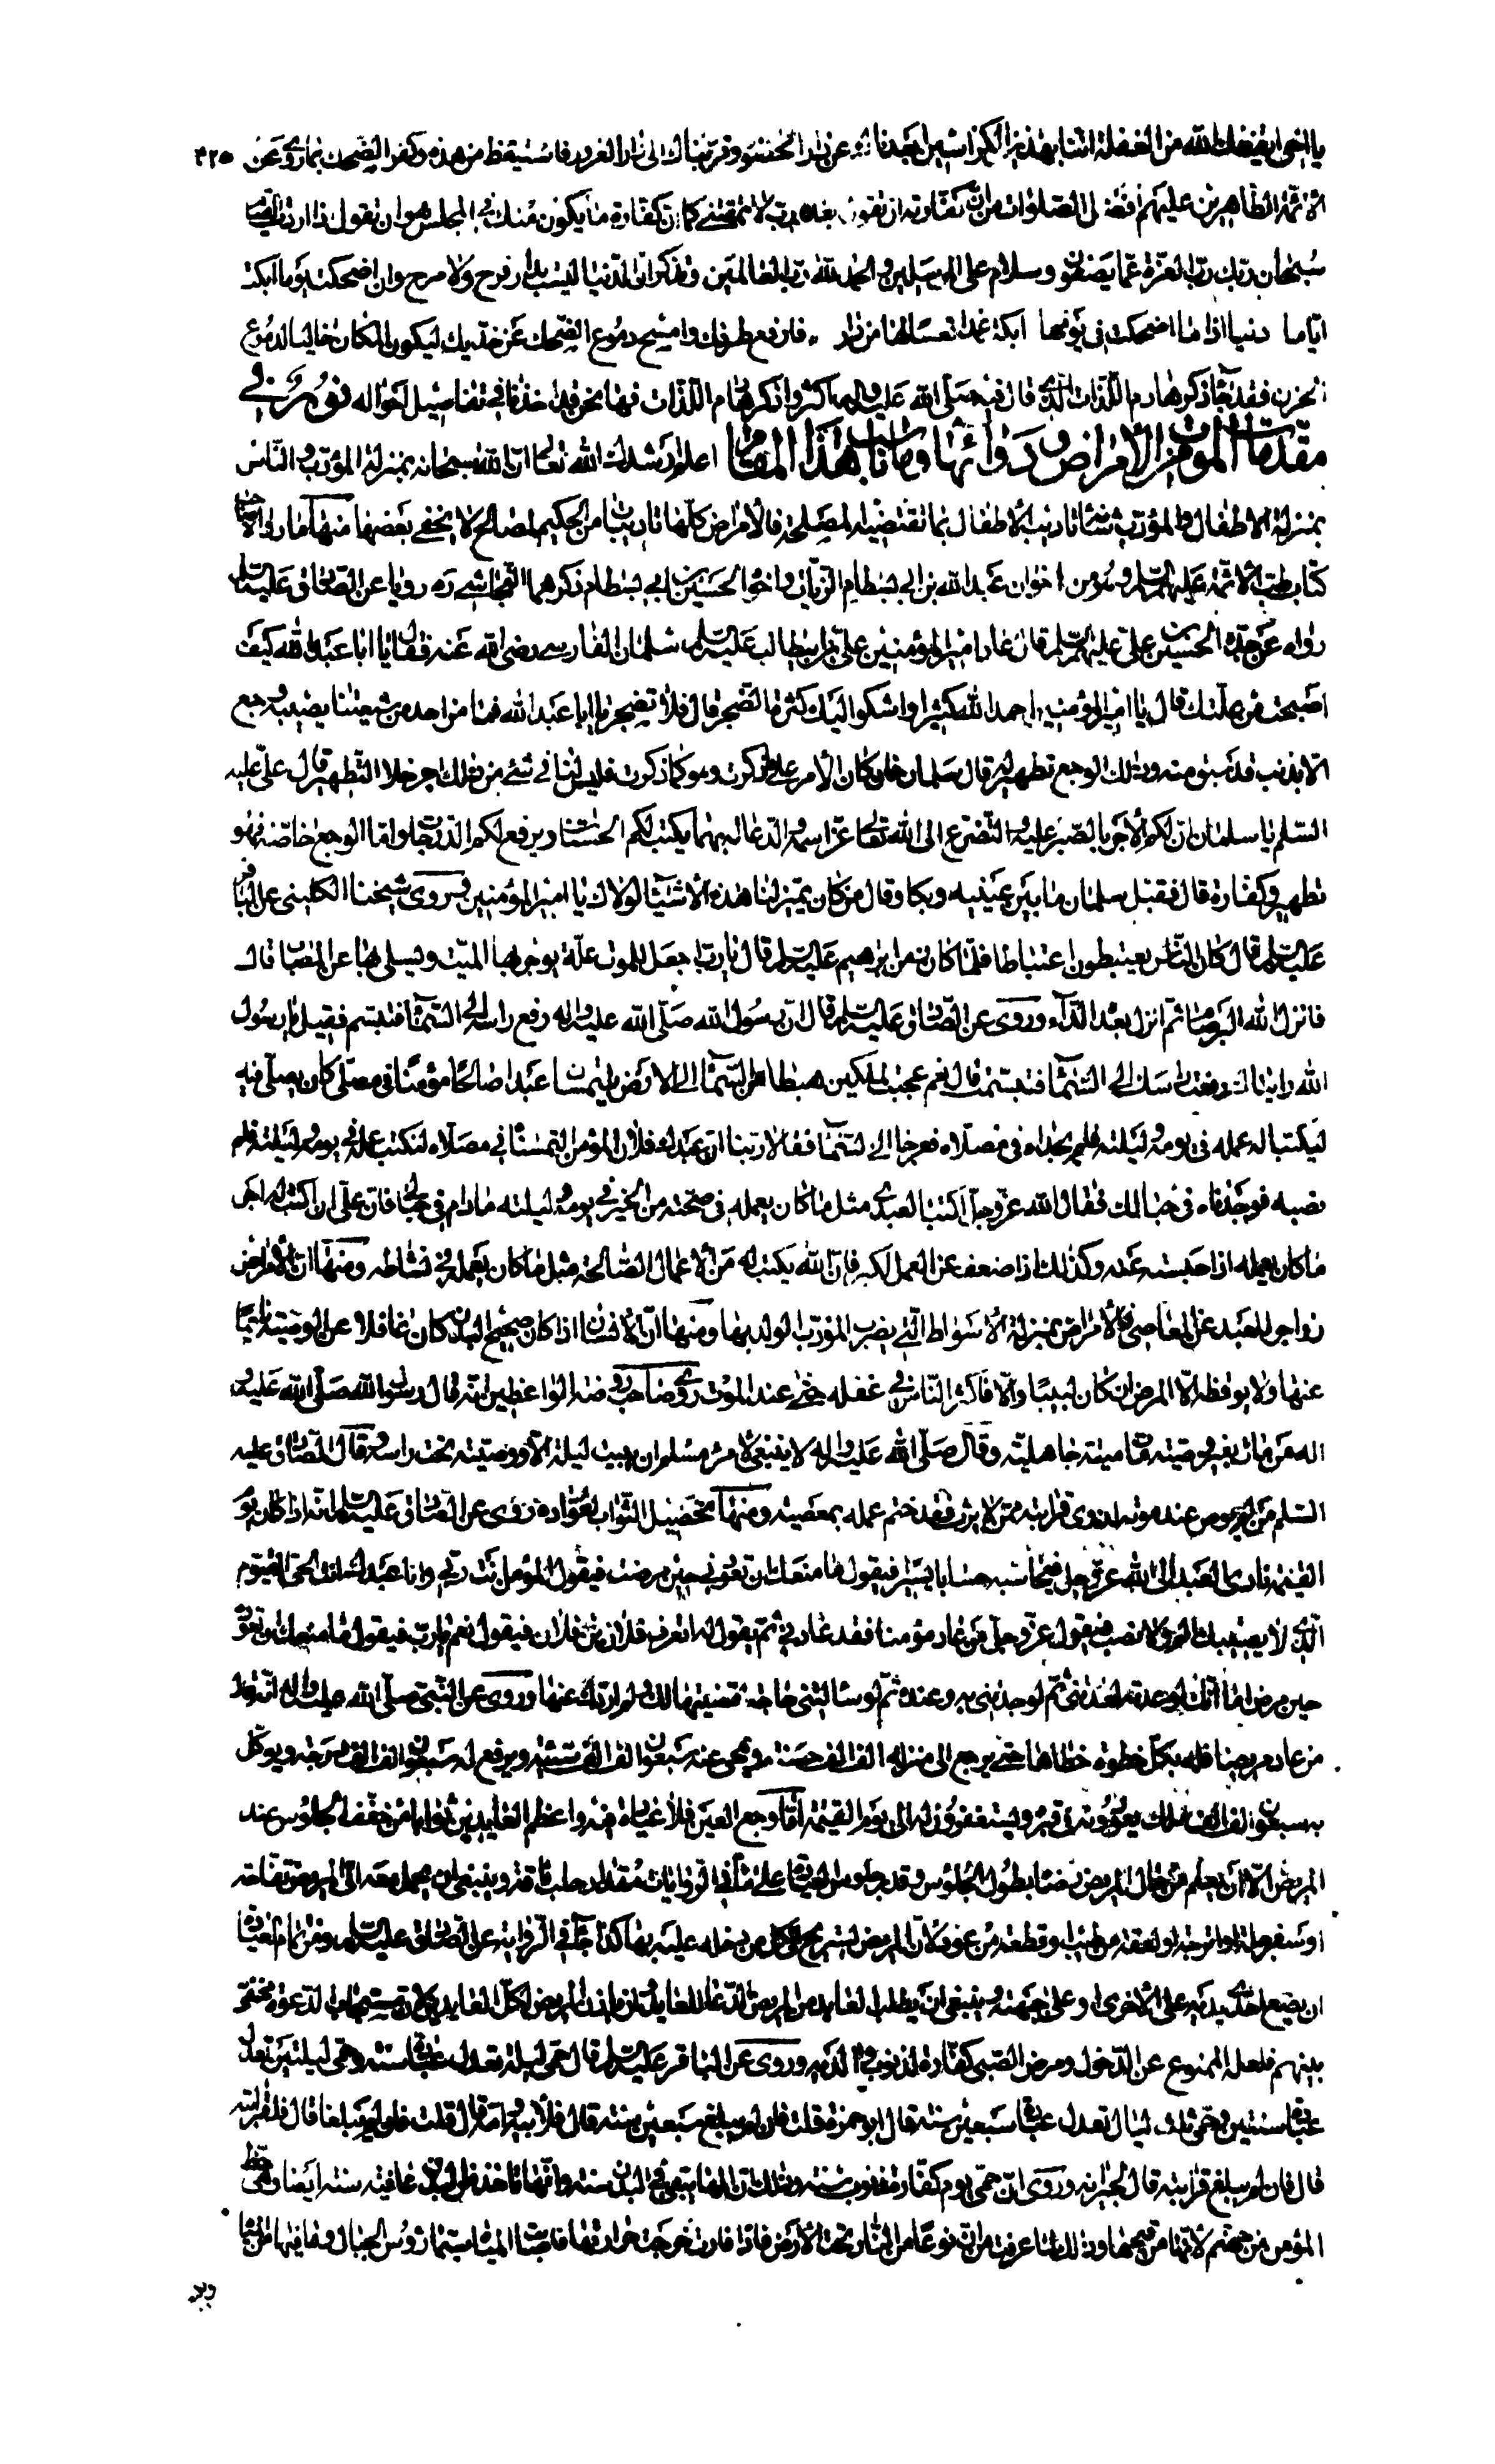 يا اخي ايقضك الله من الغفلة اتينا بهذين الكراسين ليجدنا عن دار الخنشو وقربناك الى دار الغرور فاستيقظ من هذه وكفر الضحك بما روي عن ٤٢٥
الائمة الطاهرين عليهم افضل الصلوات من ان كفارته ان تقول بعده رب لا تمقتني كما ان كفارة ما يكون منك في المجلس هو ان تقول اذا اردت القيام
سبحان ربك رب العزة عما يصفون وسلام على المرسلين والحمد لله رب العالمين وتذكر ان الدنيا ليست بدار فرح ولا مرح وان اضحكت يوما ابكت
اياما دنيا اذا ما اضحكت في يومها ابكت غدا تعسا لها من دار فارفع طرفك وامسح دموع الضحك عن خديك ليكون المكان خاليا لدموع
الحزن فقد جاء ذكر هادم اللذات الذي قال فيه صلى الله عليه واله اكثروا ذكر هادم اللذات فها نحن قد اخذنا في تفاصيل احواله نور في
مقدمات الموت من الامراض ودوائها وما يناسب هذا المقام اعلم ارشدك الله تعالى ان الله سبحانه بمنزلة المؤدب والناس
بمنزلة الاطفال والمؤدب شانه تاديب الاطفال بما تقتضيه المصلحة فالامراض كلها تاديبات من الحكيم لمصالح لا يخفى بعضها منها ما رواه صاحبا
كتاب طب الائمة عليهم السلم وهو من اخوان عبد الله بن ابي بسطام الزيات واخوه الحسين بن ابي بسطام ذكرهما النجاشي ره رويا عن الصادق عليه السلم
رواه عن جده الحسين بن علي عليهم السلم قال عاد امير المؤمنين علي بن ابيطالب عليه السلم سلمان الفارسي رضي الله عنه فقال يا ابا عبد الله كيف
اصبحت من علتك قال يا امير المؤمنين احمد الله كثيرا واشكو اليك كثرة الضجر قال فلا تضجر يا ابا عبد الله فما من احد من شيعتنا يصيبه وجع
الا بذنب قد سبق منه وذلك الوجع تطهير له قال سلمان فان كان الامر على ما ذكرت وهو كما ذكرت فليس لنا في شئ من ذلك اجر خلا التطهير قال علي عليه
السلم يا سلمان ان لكم الاجر بالصبر عليه والتضرع الى الله تعالى عز اسمه والدعاء له بهما يكتب لكم الحسنات ويرفع لكم الدرجات واما الوجع خاصة فهو
تطهير وكفارة قال فقبل سلمان ما بين عينيه وبكا وقال من كان يميز لنا هذه الاشياء لولاك يا امير المؤمنين وروى شيخنا الكليني عن الباقر
عليه السلم قال كان الناس يعتبطون اعتباطا فلما كان زمن ابرهيم عليه السلم قال يا رب اجعل للموت علة يوجر بها الميت ويسلى بها عن المصاب قال
فانزل الله البرسام ثم انزل بعده الداء وروى عن الصادق عليه السلم قال ان رسول الله صلى الله عليه واله رفع راسه الى السماء فتبسم فقيل يا رسول
الله رايناك رفعت راسك الى السماء فتبسمت قال نعم عجبت لملكين هبطا من السماء الى الارض يلتمسان عبدا صالحا مؤمنا في مصلى كان يصلي فيه
ليكتبا له عمله في يومه وليلته فلم يجداه في مصلاه فعرجا الى السماء فقالا ربنا ان عبدك فلان المؤمن التمسناه في مصلاه لنكتب عمله في يومه وليلته فلم
نصبه فوجدناه في حبالك فقال الله عز وجل اكتبا لعبدي مثل ما كان يعمله في صحته من الخير في يومه وليلته ما دام في حبالي فان علي ان اكتب له اجر
ما كان يعمله اذا حبسته عنه وكذلك اذا ضعف عن العمل لكبر فان الله يكتب له من الاعمال الصالحة مثل ما كان يعمله في نشاطه ومنها ان الامراض
زواجر للعبد عن المعاصي فالامراض بمنزلة الاسواط التي يضرب المؤدب الولد بها ومنها ان الانسان اذا كان صحيح البدن كان غافلا عن الوصية ناسيا
عنها ولا يوقظه الا المرض ان كان لبيبا والا فاكثر الناس في غفلة حتى عند الموت روى صاحب روضة الواعظين انه قال رسول الله صلى الله عليه و
اله من مات بغير وصية مات ميتة جاهلية وقال صلى الله عليه واله لا ينبغي لامرء مسلم ان يبيت ليلة الا ووصيته تحت راسه وقال الصادق عليه
السلم من لم يوص عند موته لذوي قرابته ممن لا يرث فقد ختم عمله بمعصية ومنها تحصيل الثواب لعواده روى عن الصادق عليه السلم انه اذا كان يوم
القيمة نادى العبد الى الله عز وجل فيحاسبه حسابا يسيرا فيقول ما منعك ان تعودني حين مرضت فيقول المؤمن انت ربي وانا عبدك انت الحي القيوم
الذي لا يصيبك الم ولا نصب فيقول عز وجل من عاد مؤمنا فقد عادني ثم يقول له اتعرف فلان بن فلان فيقول نعم يا رب فيقول ما منعك ان تعوده
حين مرض اما انك لو عدته لعدتني ثم لوجدتني به وعنده ثم لو سالتني حاجة قضيتها لك ولم اردك عنها وروى عن النبي صلى الله عليه واله انه قال
من عاد مريضا فله بكل خطوة خطاها حتى يرجع الى منزله الف الف حسنة ويمحى عنه سبعون الف الف سيئة ويرفع له سبعون الف الف درجة ويوكل
به سبعون الف الف ملك يعودونه في قبره ويستغفرون له الى يوم القيمة اما وجع العين فلا عيادة فيه واعظم العايدين ثوابا من خفف الجلوس عند
المريض الا ان يعلم من حال المريض رضا بطول الجلوس وقد جلوس العيادة على ما في الروايات مقدار حلب ناقة وينبغي ان يحمل معه الى المريض تفاحة
او سفرجلة او اترجة او لعقة من طيب او قطعة من عود لان المريض ليستريح الى كل من يدخله عليه بها كذا جاء في الرواية عن الصادق عليه السلم ومن تمام العيادة
ان يضع احدى يديه على الاخرى او على جبهته وينبغي ان يطلب العايد من المريض الدعاء للعايد وان ياذن المريض لكل العايدين لان مستجاب الدعوة مختف
بينهم فلعله الممنوع عن الدخول ومرض الصبي كفارة لذنوب والديه وروى عن الباقر عليه السلم قال حمى ليلة تعدل عبادة سنة وحمى ليلتين تعدل
عبادة سنتين وحمى ثلث ليال تعدل عبادة سبعين سنة قال ابو حمزة قلت فان لم يبلغ سبعين سنة قال فلابيه وامه قال قلت فان لم يبلغا قال فلقرابته
قال فان لم يبلغ قرابته قال لجيرانه وروى ان حمى يوم كفارة ذنوب سنة وذلك ان المها يبقى في البدن سنة وانها تاخذ من البدن عافية سنة ايضا وهي حظ
المؤمن من جهنم لانها من فيحها وذلك لما عرفت من ان نوعا من النار تحت الارض فاذا فارت خرجت حرارتها فاصابت المياه سيما رؤس الجبال وما فيها من المياه